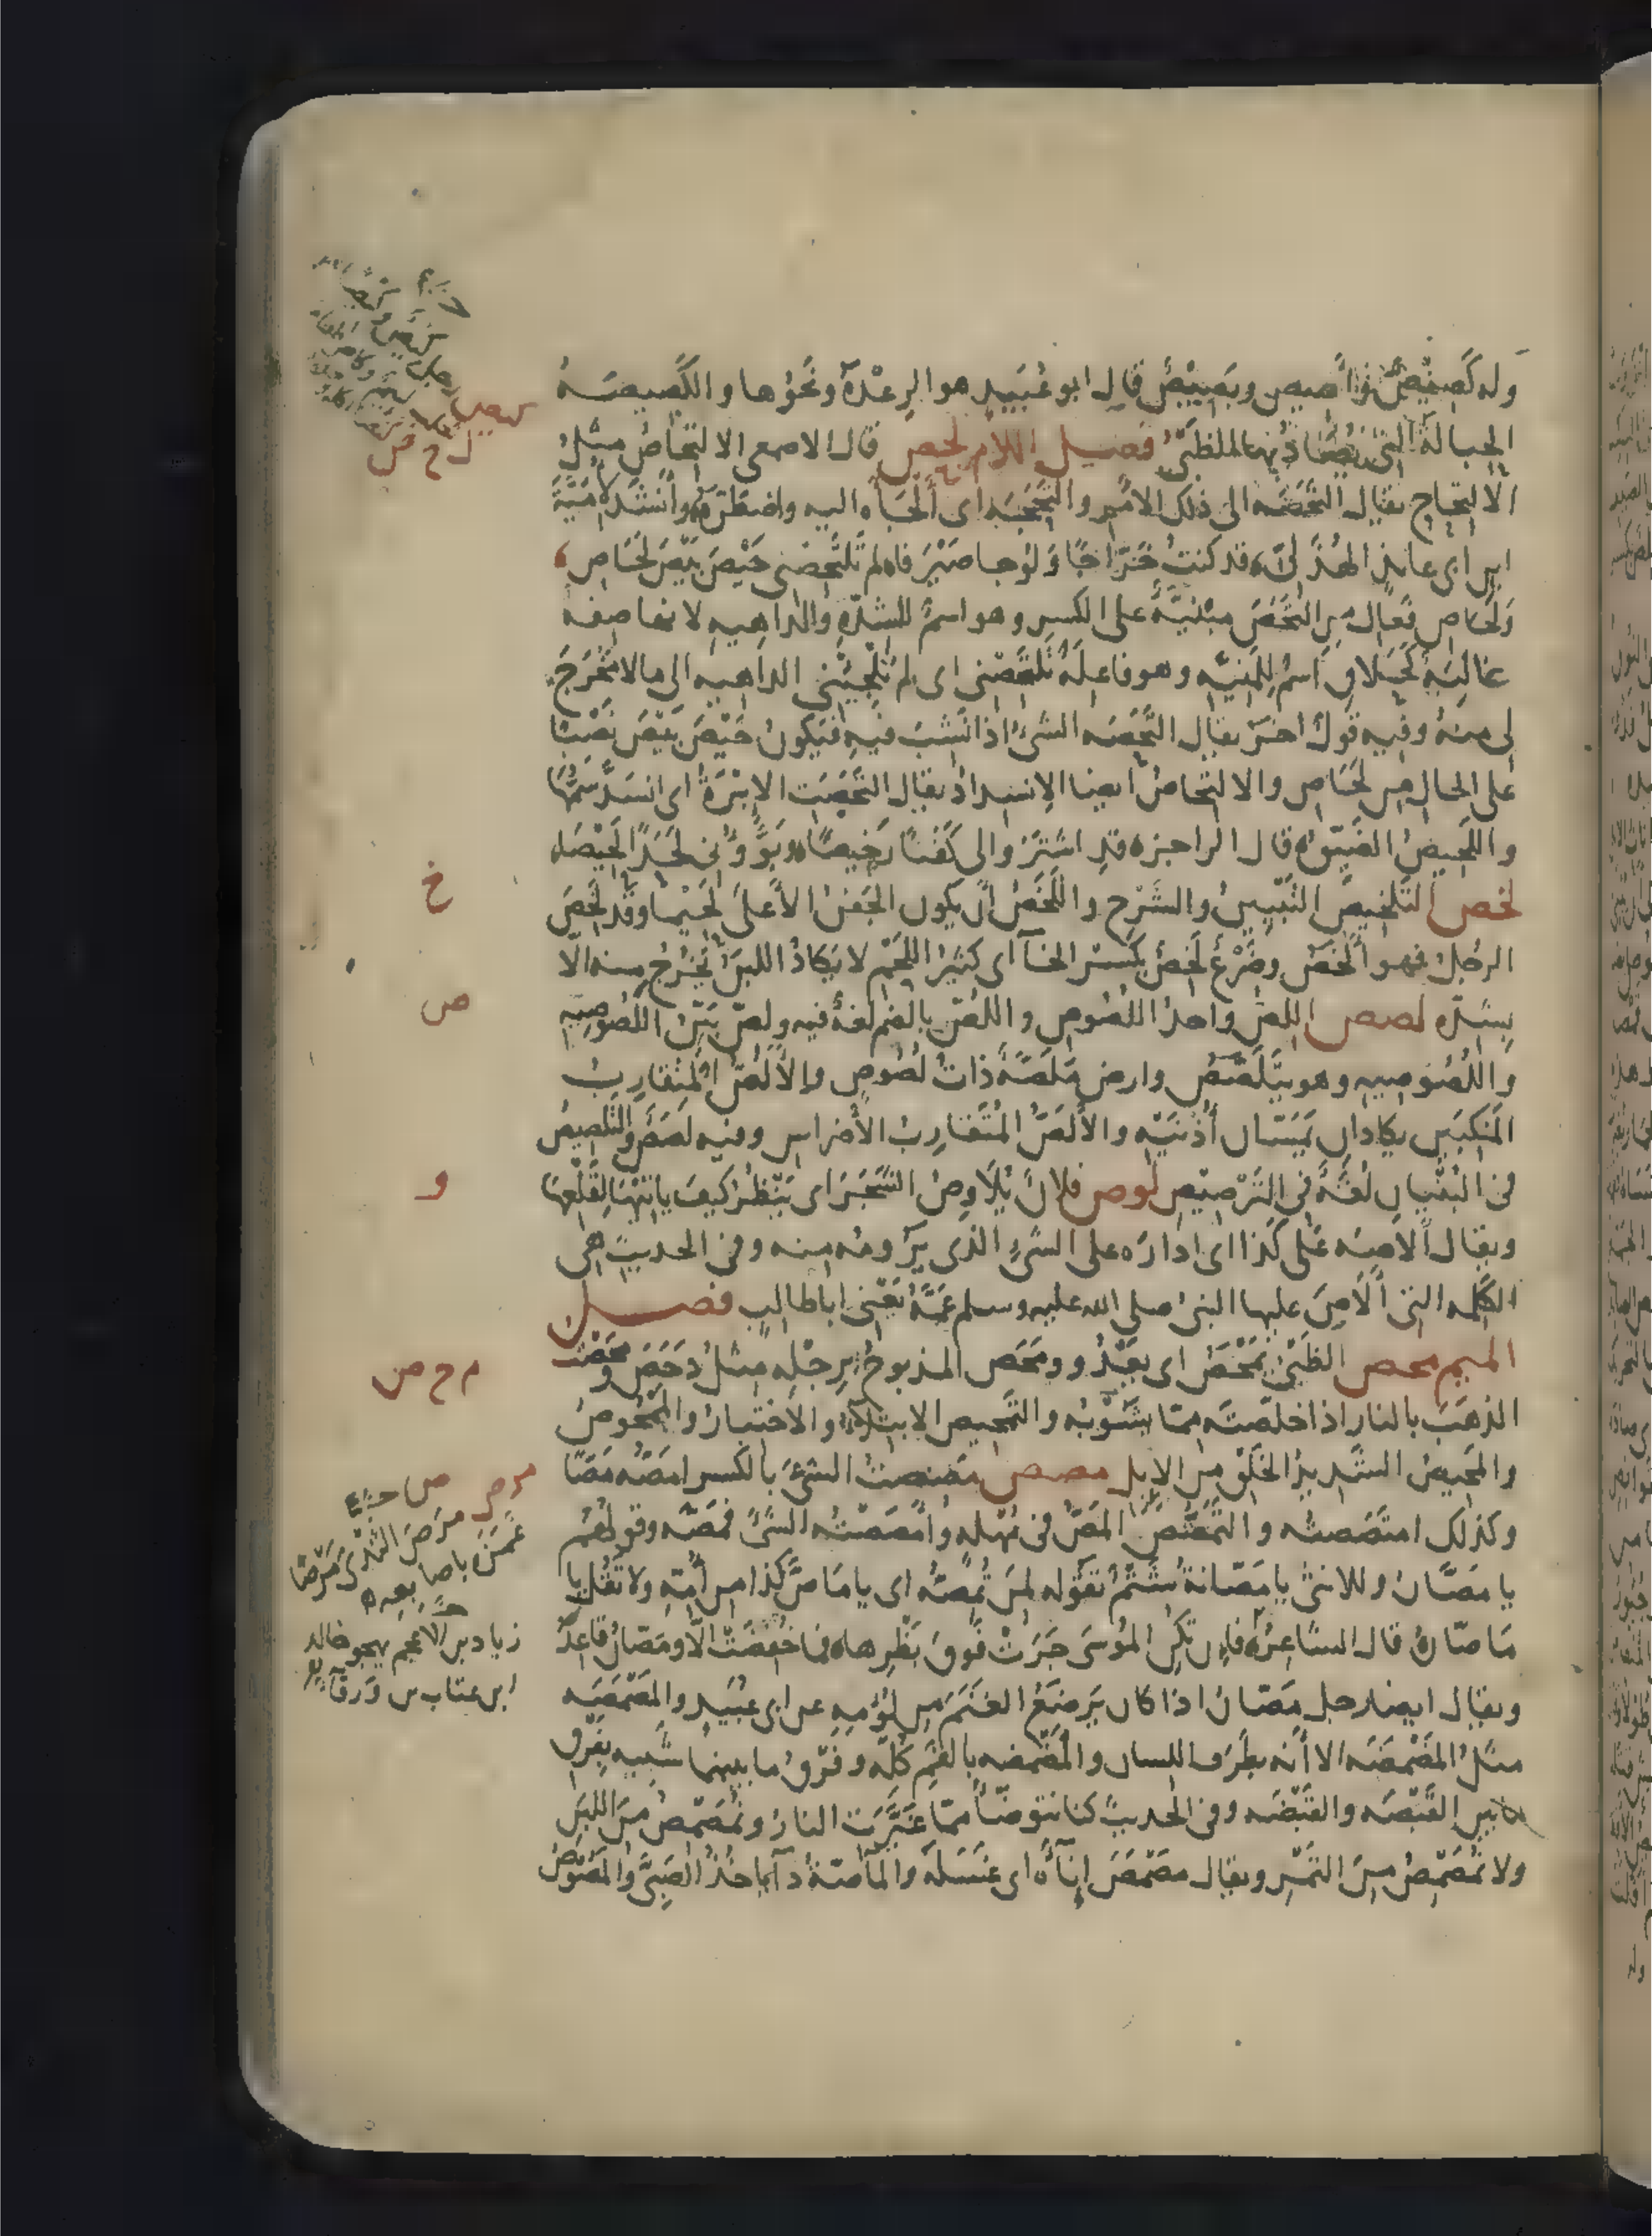 وله كَصِيْصٌ وأَصيص وبَصِيْصٌ قال ابو عُبَيد هو الرِعْدَة ونَحْوُها والكَصِيصَةُ
الحِبالَة التى يُصَادُ بها الظَبْىُ فصل اللام لحص قال الاصمعى الالتِحَاصُ مثلُ
الالتِحاج يقال التَحَصَه الى ذلك الامر والتَحَجَه اى أَلْجَأه اليه واضطَرَّه وأنشد لأُمَيَّةَ
ابن ابى عايذ الهُذَلىّ قد كنتُ خَرَّاجًا وَلُوجا صَيْرَفا لم تَلْتَحِصْنى حَيْصَ بَيْصَ لَحَاصِ
ولَحَاصِ فَعَالِ من التَحَصَ مبْنيَّةٌ على الكسر وهو اسمٌ للشدّةِ والداهيه لانها صفه
غالبَة كحَلاقِ اسْم للمَنيَّه وهو فاعِلَةُ تَلْتَحِصْنى اى لم تُلْجِئْنى الداهيه الى ما لا مَخْرَجَ
لى منهُ وفيه قولٌ اخر يقال التَحَصَه الشىءُ اذا نَشِبَ فيه فيكون حَيْصَ بَيْصَ نَصْبًا
على الحال من لَحَاصِ والالتِحاصُ ايضا الانسِدادُ يقال التَحَصَتِ الابْرَةُ اى انسَدَّ سَمُّهَا
واللَحِيصُ الضَيّقُ قال الراجز قد اشتَرَوا لى كَفَنًا رَخِيصًا وبَوَّؤُونى لَحَدًا لَحِيْصَا
لخص التَلخِيصُ التَبْيينُ والشَرْح واللَخَصُ أن يكون الجَفنُ الأَعلَى لَحِيمًا وقد لَخِصَ
الرجُلُ فهو أَلْخَصُ وضَرْعٌ لَخِصٌ بكسر الخآ اى كثيرُ اللَحْم لا يكادُ اللبن يَخْرُج منه الا
بشدّه لصص اللِصُّ واحدُ اللصُوص واللُصّ بالضم لغةٌ فيه ولِصٌّ بَيّنُ اللَصُوصِيَه
واللُصُوصِيه وهو يَتَلَصَّصُ وارض مَلَصَّةٌ ذاتُ لُصُوصٍ والأَلَصُّ المُتَقارِبُ
المَنكِبَين يكادان يَمَسّان أُذُنَيْه والأَلَصُّ المُتَقارِبُ الأَضراس وفيه لَصَصٌ والتَلصيصُ
فى البُنْيان لُغَةٌ فى التَرْصيْص لوص فلانٌ يُلاوِصُ الشَجَرَ اى يَنْظُر كيفَ ياتِيْهَا لِقَلْعِهَا
ويقال ألاصَه عَلَى كَذا اى ادارَه على الشىء الذى يَرومُه منه وفى الحديث هى
الكَلمه التى أَلاصَ عليها النبىُ صلى الله عليه وسلم عَمَّهُ يَعْنى اباطالب فصل
الميم محص الظَبْىُ يَمْحَصُ اى يعْدُو ومَحَص المذبوحُ برِجْلِهِ مثلُ دَحَصَ ومحَصْتُ
الذهَبَ بالنار اذا خلّصتَه مِمّا يَشُوْبُه والتَمْحيص الابتِلاءُ والاختِبارُ والمَمْحُوصُ
والمَحِيصُ الشَديدُ الخَلْقِ من الابِل مصص مَصِصتُ الشىءَ بالكسر امَصُّه مَصًّا
وكذلك امتَصَصتُه والتَمَصُّصُ المَصُّ فى مُهْلَه وأمْصَصْتُه الشىءَ فمَصَّه وقولهُم
يا مَصَّان وللانثى يا مَصّانةُ شَتْمٌ تَقُوله لمن تُمِصُّه اى يا مَاصَّ كذا من أُمّهِ ولا تَقُل يا
مَاصّانُ قال الشاعرُ فان تكنِ المُوسَى جَرَتْ فوقَ بَظْرِها فما خُفِضَتْ الّا ومَصّانُ قاعِدُ
ويقال ايضا رجل مَصّانٌ اذا كان يَرضَعُ الغنَمَ من لُؤمِهِ عن ابى عُبَيد والمَصْمَصَه
مثلُ المَضْمَضَه الا أنه بطَرَف اللسان والمَضْمَضه بالفَمِ كُلّه وفَرْقُ ما بينهما شَبيه بفَرق
ما بين القَبْصَه والقَبْضَه وفى الحديث كنا نتوضّأ ممّا غَيَّرَتِ النارُ ونُمَصْمِصُ من اللبن
ولا نُمَصْمِصُ من التَمْر ويقال مصْمَصَ إنَآءَه اى غسَلَه والمَآصّةُ دآءٌ ياخذُ الصَبىَّ والمَصُوصُ
كصص
ل ح ص
خ
ص
و
م ح ص
مرص ص
مَرَصَ الثَدْىَ مَرْصًا
غَمَزَ باصابعه
زياد بن الاعجم يهجو خالد
ابن عتاب بن ورقآء